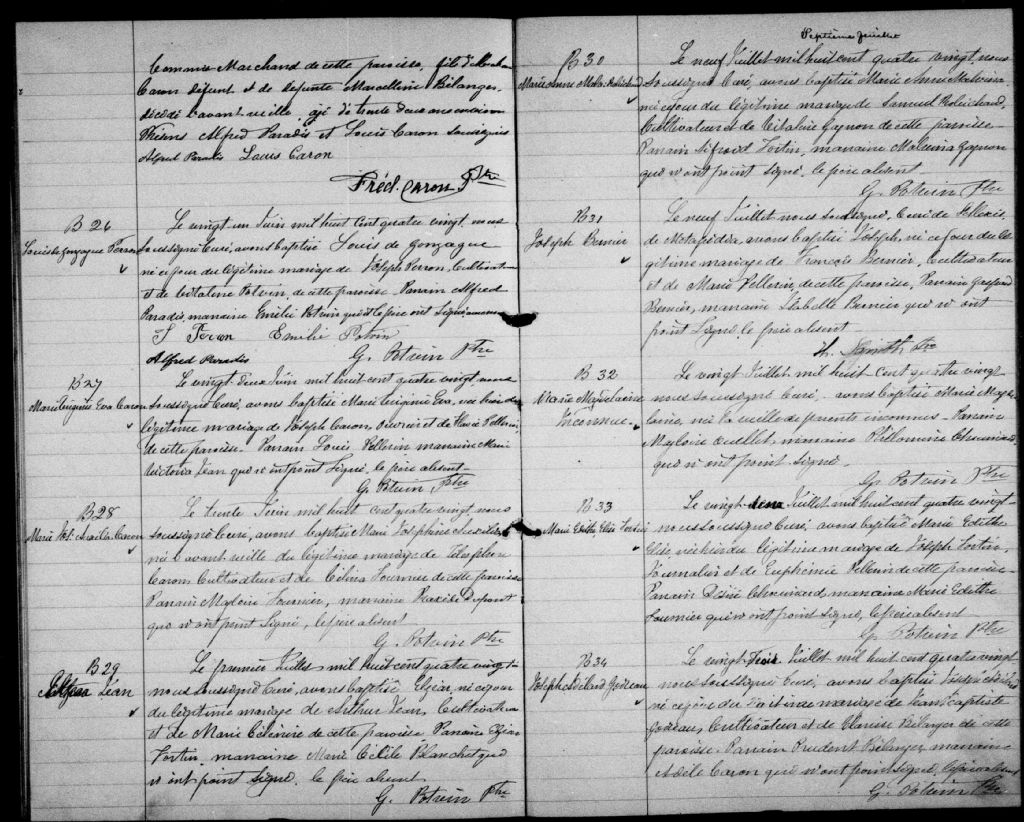 Commis-Marchand de cette paroisse, fils d'
Caron défunt et de défunte Marcelline Bélanger,
décédé l'avant veille, agé de trente deux ans environ
Témoins Alfred Paradis et Louis Caron soussignés
Alfred Paradis Louis Caron
Fréd. Caron Ptre
B 26
Louis de Gonzague Perron
Le vingt un Juin mil huit cent quatre vingt nous
soussigné Curé, avons baptisé Louis de Gonzague
né ce jour du légitime mariage de Joseph Perron, Cultivateur
et de Vitaline Potvin, de cette paroisse. Parrain Alfred
Paradis, marraine Emélie Potvin qui et le père ont signé
J Peron Emilie Potvin
Alfred Paradis G. Potvin Ptre
B 27
Marie Virginie Eva Caron
Le vingt deux Juin mil huit cent quatre vingt nous
soussigné Curé, avons baptisé Marie Virginie Eva, née hier du
légitime mariage de Joseph Caron, Ouvrier et de Flavie Pellerin
de cette paroisse. Parrain Louis Pellerin marraine Marie
Victoria Jean qui n'ont point signé, le père absent
G. Potvin Ptre
B 28
Marie Jos. Caron
Le trente Juin mil huit cent quatre vingt, nous
soussigné Curé, avons baptisé Marie Joséphine
née l'avant veille du légitime mariage de Télesphore
Caron Cultivateur et de Célina Fournier de cette paroisse
Parrain Magloire Fournier, marraine Praxède Dupont
qui n'ont point signé, le père absent
G. Potvin Ptre
B 29
Jean
Le premier Juillet mil huit cent quatre vingt
nous soussigné Curé, avons baptisé Elzéar, né ce jour
du légitime mariage de Arthur Jean, Cultivateur
et de Marie de cette paroisse Parrain Elzéar
Fortin, marraine Marie Cécile Blanchet qui
n'ont point signé, le père absent
G. Potvin Ptre
B 30
Marie Anne Malvina Robichaud
Septième feuillet
Le neuf Juillet mil huit cent quatre vingt, nous
soussigné Curé, avons baptisé Marie Anne Malvina
née ce jour du légitime mariage de Samuel Robichaud,
Cultivateur et de Vitaline Gagnon de cette paroisse
Parrain Sifroid Fortin, marraine Malvina Gagnon
qui n'ont point signé, le père absent
G. Potvin Ptre
B 31
Joseph Bernier
Le neuf Juillet nous soussigné, Curé de St Alexis,
de Matapédia, avons baptisé Joseph, né ce jour du lé
gitime mariage de François Bernier, Cultivateur
et de Marie Pellerin, de cette paroisse, Parrain Gaspard
Bernier, marraine Isabelle Bernier qui n'ont
point signé, le père absent
Th. Smith Ptre
B 32
Marie Magdeleine
Inconnue
Le vingt Juillet mil huit cent quatre vingt
nous soussigné Curé, avons baptisé Marie Magde
leine, née la veille de parents inconnus. Parrain
Magloire Ouellet, marraine Philomène Chouinard
qui n'ont point signé.
G. Potvin Ptre
B 33
Marie Edith Elise Fortin
Le vingt deux Juillet mil huit cent quatre vingt
nous soussigné Curé, avons baptisé Marie Edithe
Elise, née hier du légitime mariage de Joseph Fortin,
Journalier et de Euphémie Pellerin de cette paroisse
Parrain Désiré Chouinard marraine Marie Edithe
Fournier qui n'ont point signé, le père absent
G. Potvin Ptre
B 34
Joseph Godreau
Le vingt trois Juillet mil huit cent quatre vingt
nous soussigné Curé, avons baptisé Joseph
né ce jour du légitime mariage de Jean Baptiste
Godreau, Cultivateur et de Clarisse Bélanger de cette
paroisse. Parrain Prudent Bélanger marraine
Caron qui n'ont point signé, le père absent
G. Potvin Ptre